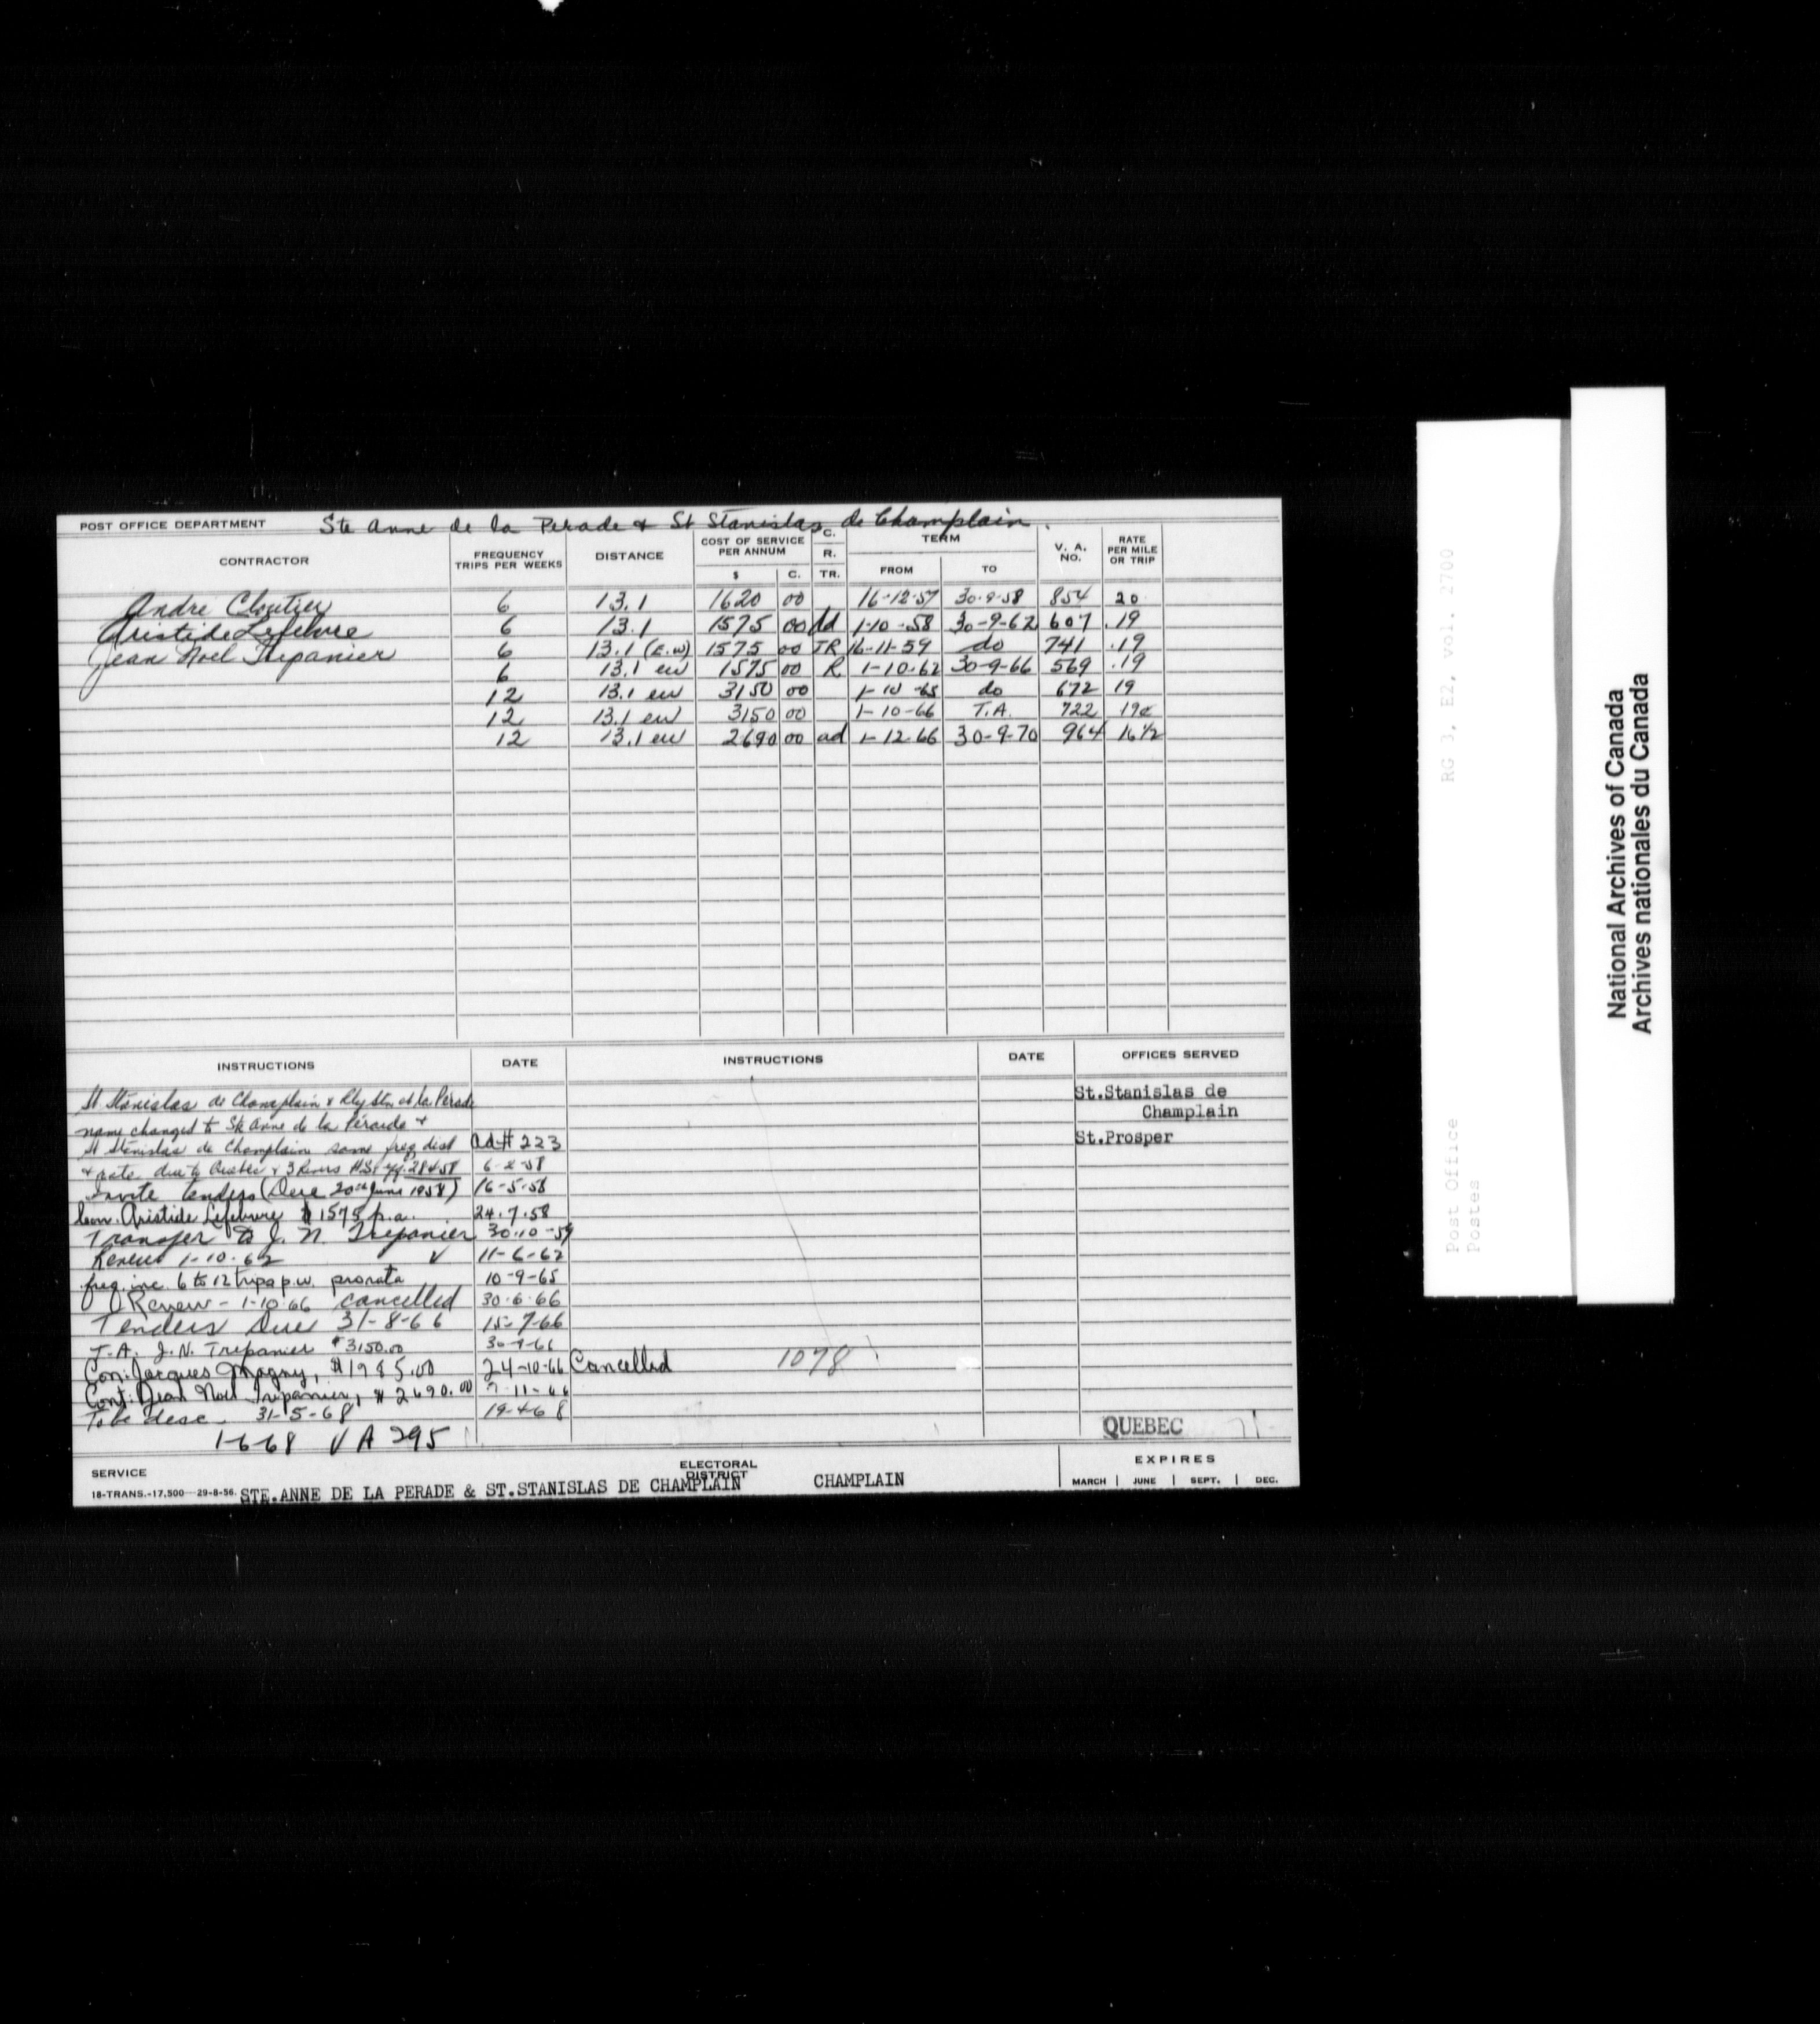 POST OFFICE DEPARTMENT Ste Anne de la Perade & St Stanislas de Champlain.
CONTRACTOR FREQUENCY TRIPS PER WEEKS DISTANCE COST OF SERVICE PER ANNUM $ C. C. R. TR. TERM FROM TO V. A. NO. RATE PER MILE OR TRIP
Andre Cloutier 6 13.1 1620 00 16-12-57 30-9-58 854 20
Aristide Lefebvre 6 13.1 1575 00 Ad 1-10-58 30-9-62 607 .19
Jean Noel Trepanier 6 13.1 (E.W) 1575 00 TR 16-11-59 do 741 .19
6 13.1 ew 1575 00 R 1-10-62 30-9-66 569 .19
12 13.1 ew 3150 00 1-10-65 do 672 19
12 13.1 ew 3150 00 1-10-66 T.A. 722 19c
12 13.1 ew 2690 00 ad 1-12-66 30-9-70 964 16½
INSTRUCTIONS DATE INSTRUCTIONS DATE OFFICES SERVED
St Stanislas de Champlain & Rly Stn at la Perade St.Stanislas de
name changed to Ste Anne de la Pérade & Champlain
St Stanislas de Champlain same freq dist Ad# 223 St.Prosper
& rate due to Quebec & 3 Rivers H.S. 6-2-58
Invite tenders (Due 20th June 1958) 16-5-58
Con. Aristide Lefebvre $1575 p.a. 24-7-58
Transfer to J. N. Trepanier 30-10-59
Renew 1-10-62 ✓ 11-6-62
freq. inc. 6 to 12 trips p.w. prorata 10-9-65
Renew - 1-10-66 cancelled 30-6-66
Tenders Due 31-8-66 15-7-66
T.A. J.N. Trepanier $3150.00 30-9-66
Con: Jacques Magny, $1985.00 24-10-66 Cancelled 1078
Cont: Jean Noel Trepanier, $2690.00 7-11-66
To be desc. 31-5-68 19-4-68
QUEBEC 71
1-6-68 V A 295
SERVICE ELECTORAL DISTRICT EXPIRES
18-TRANS.-17,500—29-8-56. STE.ANNE DE LA PERADE & ST.STANISLAS DE CHAMPLAIN CHAMPLAIN MARCH JUNE SEPT. DEC.
Post Office RG 3, E2, vol. 2700
Postes
National Archives of Canada
Archives nationales du Canada